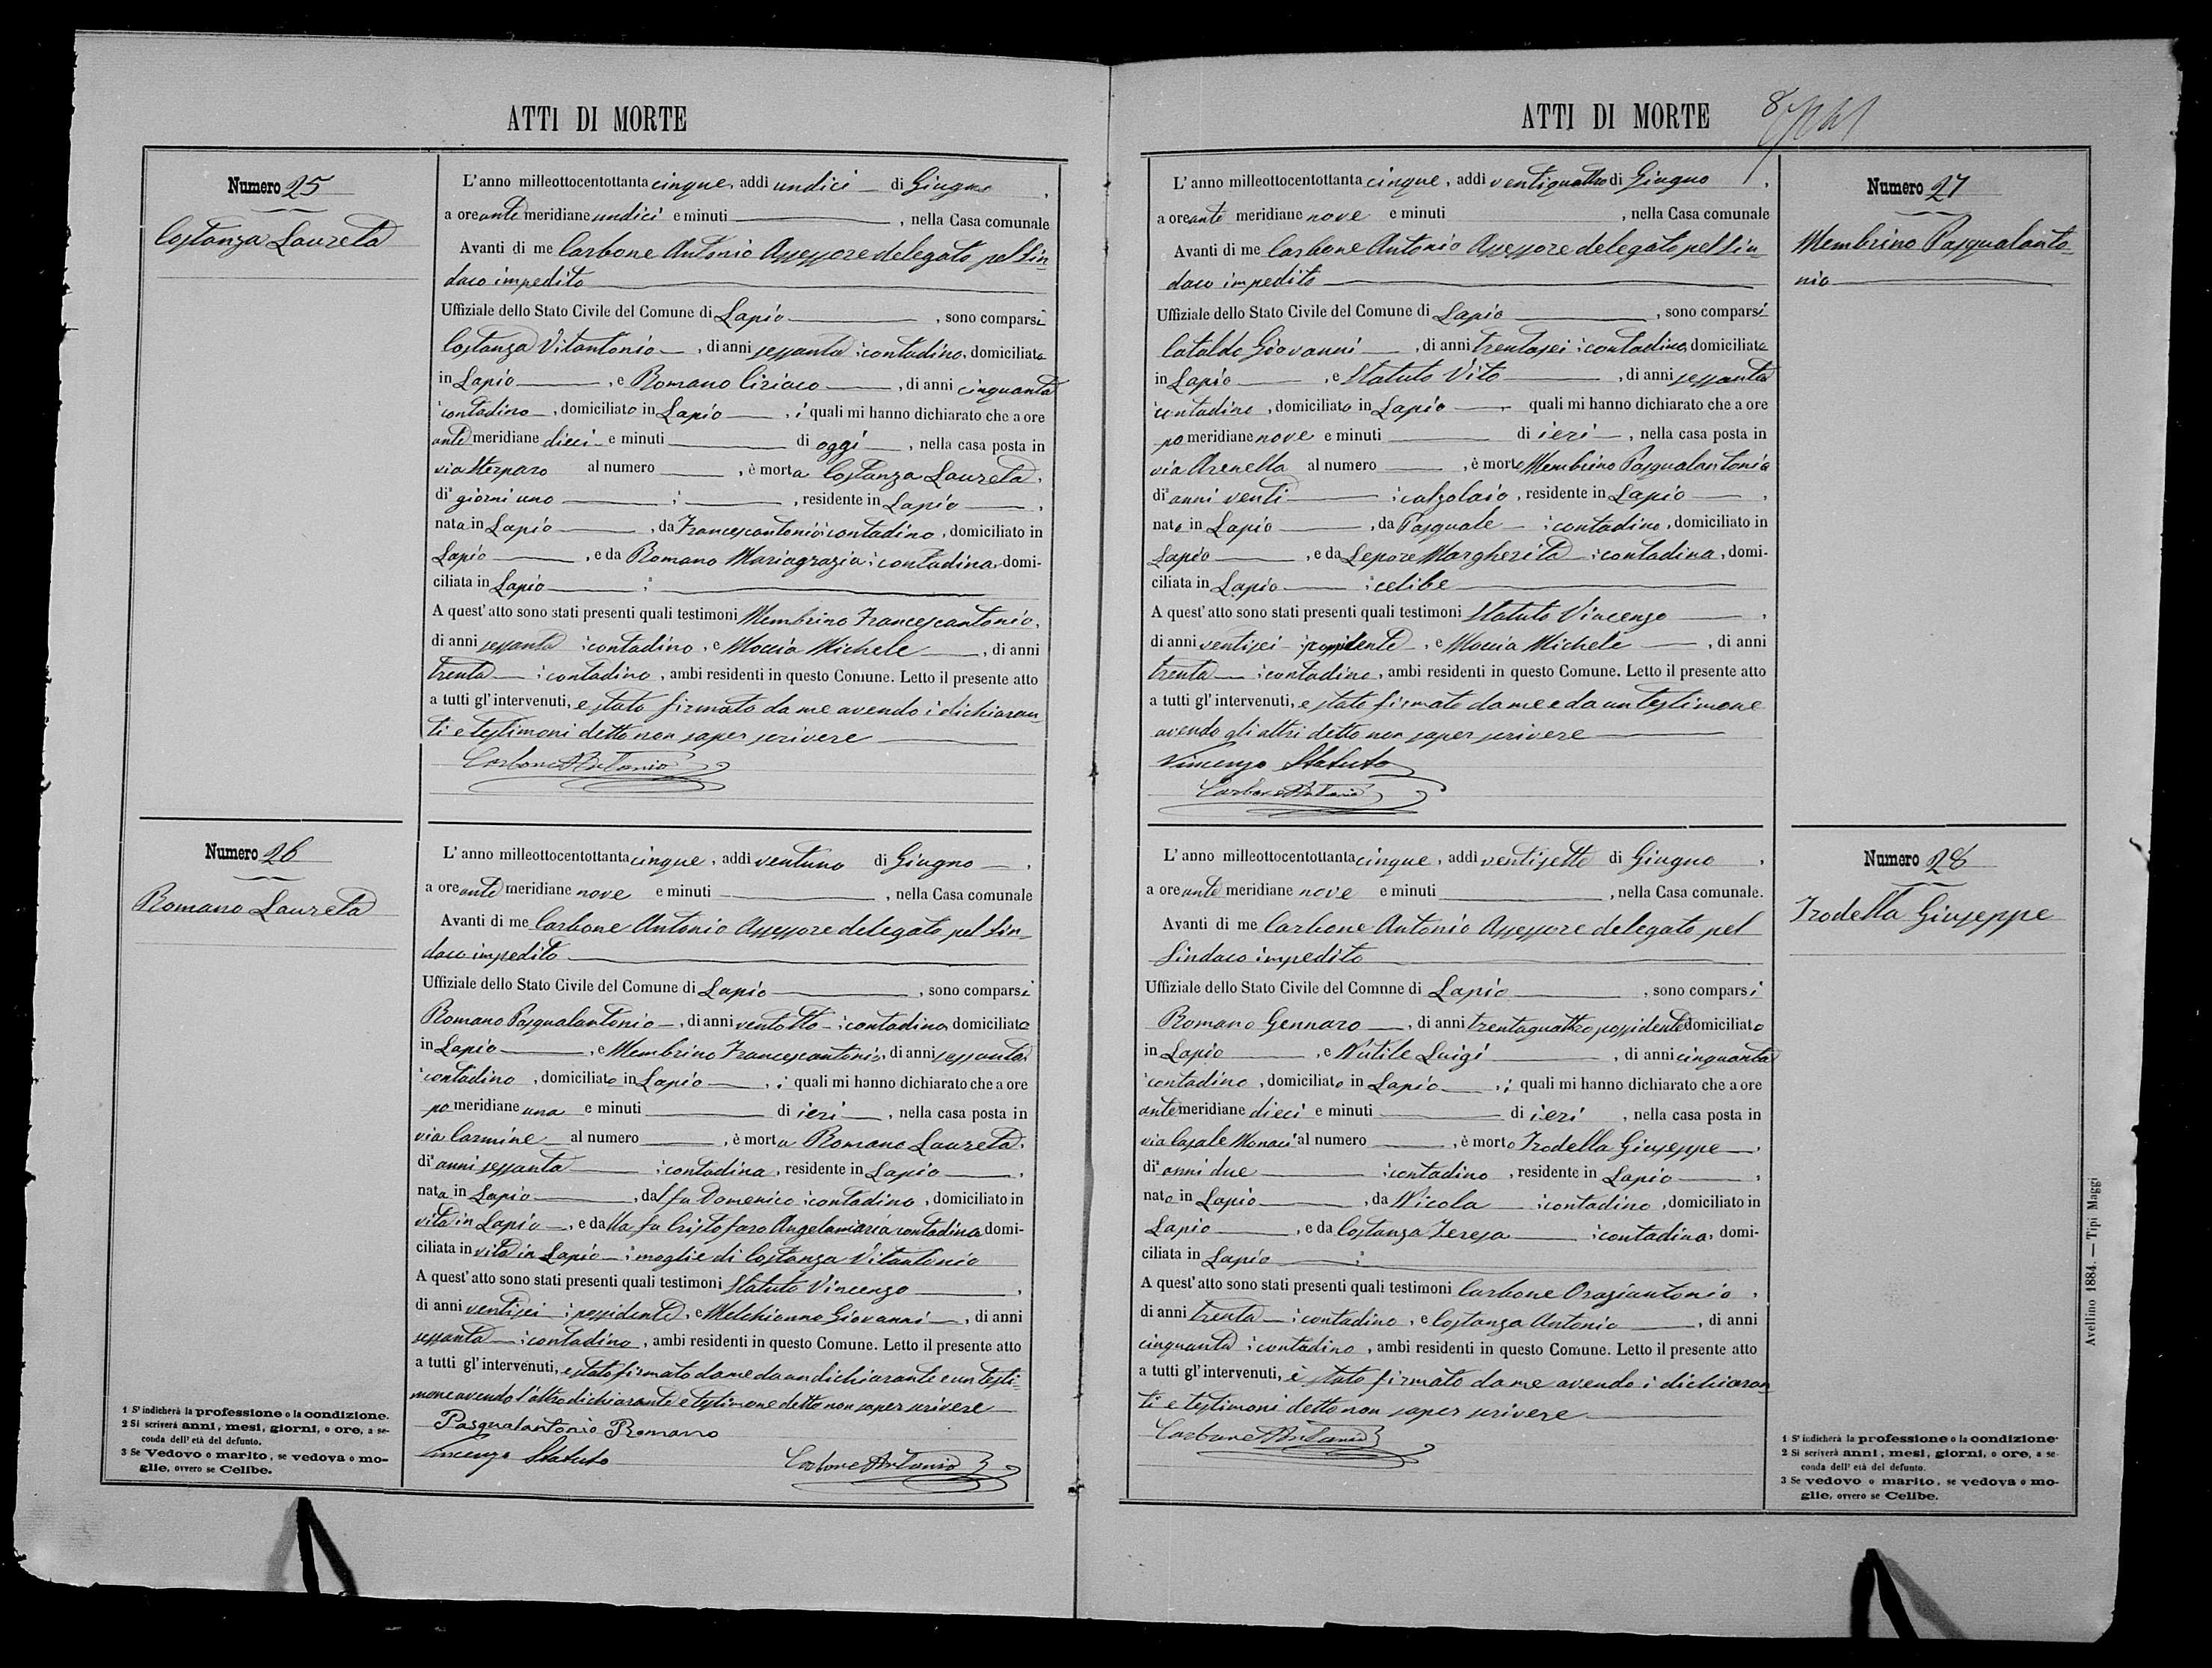 ATTI DI MORTE
Numero 25
Costanza Laureta
L'anno milleottocentottanta cinque, addi undici di Giugno,
a ore ante meridiane undici e minuti, nella Casa comunale
Avanti di me Carbone Antonio Assessore delegato pel Sin-
daco impedito
Uffiziale dello Stato Civile del Comune di Lapio, sono comparsi
Costanza Vitantonio, di anni sessanta, contadino, domiciliato
in Lapio, e Romano Ciriaco, di anni cinquanta
contadino, domiciliato in Lapio, i quali mi hanno dichiarato che a ore
ante meridiane dieci e minuti di oggi, nella casa posta in
via Sterparo al numero, è morta Costanza Laureta,
di giorni uno, residente in Lapio,
nata in Lapio, da Francescantonio contadino, domiciliato in
Lapio, e da Romano Mariagrazia contadina, domi-
ciliata in Lapio
A quest' atto sono stati presenti quali testimoni Membrino Francescantonio,
di anni sessanta contadino, e Moccia Michele, di anni
trenta contadino, ambi residenti in questo Comune. Letto il presente atto
a tutti gl'intervenuti, e stato firmato da me avendo i dichiaran-
ti e testimoni detto non saper scrivere
Carbone Antonio
Numero 26
Romano Laureta
L'anno milleottocentottanta cinque, addi ventuno di Giugno,
a ore ante meridiane nove e minuti, nella Casa comunale
Avanti di me Carbone Antonio Assessore delegato pel Sin-
daco impedito
Uffiziale dello Stato Civile del Comune di Lapio, sono comparsi
Romano Pasqualantonio, di anni ventotto contadino, domiciliato
in Lapio, e Membrino Francescantonio, di anni sessanta
contadino, domiciliato in Lapio, i quali mi hanno dichiarato che a ore
po meridiane una e minuti di ieri, nella casa posta in
via Carmine al numero, è morta Romano Laureta,
di anni sessanta contadina, residente in Lapio,
nata in Lapio, dal fu Domenico contadino, domiciliato in
vita in Lapio, e dalla fu Cristofaro Angelamaria contadina domi-
ciliata in vita in Lapio moglie di Costanza Vitantonio
A quest' atto sono stati presenti quali testimoni Statuto Vincenzo,
di anni ventisei possidente, e Melchionno Giovanni, di anni
sessanta contadino, ambi residenti in questo Comune. Letto il presente atto
a tutti gl' intervenuti, e stato firmato da me da un dichiarante e un testi-
mone avendo l'altro dichiarante e testimone detto non saper scrivere
Pasqualantonio Romano
Vincenzo Statuto Carbone Antonio
1 S' indicherà la professione o la condizione.
2 Si scriverà anni, mesi, giorni, o ore, a se-
conda dell' età del defunto.
3 Se Vedovo o marito, se vedova o mo-
glie, ovvero se Celibe.
ATTI DI MORTE
L'anno milleottocentottanta cinque, addi ventiquattro di Giugno,
a ore ante meridiane nove e minuti, nella Casa comunale
Avanti di me Carbone Antonio Assessore delegato pel Sin-
daco impedito
Uffiziale dello Stato Civile del Comune di Lapio, sono comparsi
Cataldo Giovanni, di anni trentasei contadino, domiciliato
in Lapio, e Statuto Vito, di anni sessanta
contadino, domiciliato in Lapio quali mi hanno dichiarato che a ore
po meridiane nove e minuti di ieri, nella casa posta in
via Arenella al numero, è morto Membrino Pasqualantonio
di anni venti calzolaio, residente in Lapio,
nato in Lapio, da Pasquale contadino, domiciliato in
Lapio, e da Lepore Margherita contadina, domi-
ciliata in Lapio celibe
A quest' atto sono stati presenti quali testimoni Statuto Vincenzo,
di anni ventisei possidente, e Moccia Michele, di anni
trenta contadino, ambi residenti in questo Comune. Letto il presente atto
a tutti gl' intervenuti, e stato firmato da me e da un testimone
avendo gli altri detto non saper scrivere
Vincenzo Statuto
Carbone Antonio
Numero 27
Membrino Pasqualanto-
nio
L' anno milleottocentottanta cinque, addi ventisette di Giugno,
a ore ante meridiane nove e minuti, nella Casa comunale.
Avanti di me Carbone Antonio Assessore delegato pel
Sindaco impedito
Uffiziale dello Stato Civile del Comnne di Lapio, sono comparsi
Romano Gennaro, di anni trentaquattro possidente domiciliato
in Lapio, e Nutile Luigi, di anni cinquanta
contadino, domiciliato in Lapio, i quali mi hanno dichiarato che a ore
ante meridiane dieci e minuti di ieri, nella casa posta in
via Casale Monaci al numero, è morto Trodella Giuseppe
di anni due contadino, residente in Lapio,
nato in Lapio, da Nicola contadino, domiciliato in
Lapio, e da Costanza Teresa contadina, domi-
ciliata in Lapio
A quest' atto sono stati presenti quali testimoni Carbone Oraziantonio,
di anni trenta contadino, e Costanza Antonio, di anni
cinquanta contadino, ambi residenti in questo Comune. Letto il presente atto
a tutti gl' intervenuti, è stato firmato da me avendo i dichiaran-
ti e testimoni detto non saper scrivere
Carbone Antonio
Numero 28
Trodella Giuseppe
1 S' indicherà la professione o la condizione.
2 Si scriverà anni, mesi, giorni, o ore, a se-
conda dell' età del defunto.
3 Se vedovo o marito, se vedova o mo-
glie, ovvero se Celibe.
Avellino 1884. — Tipi Maggi